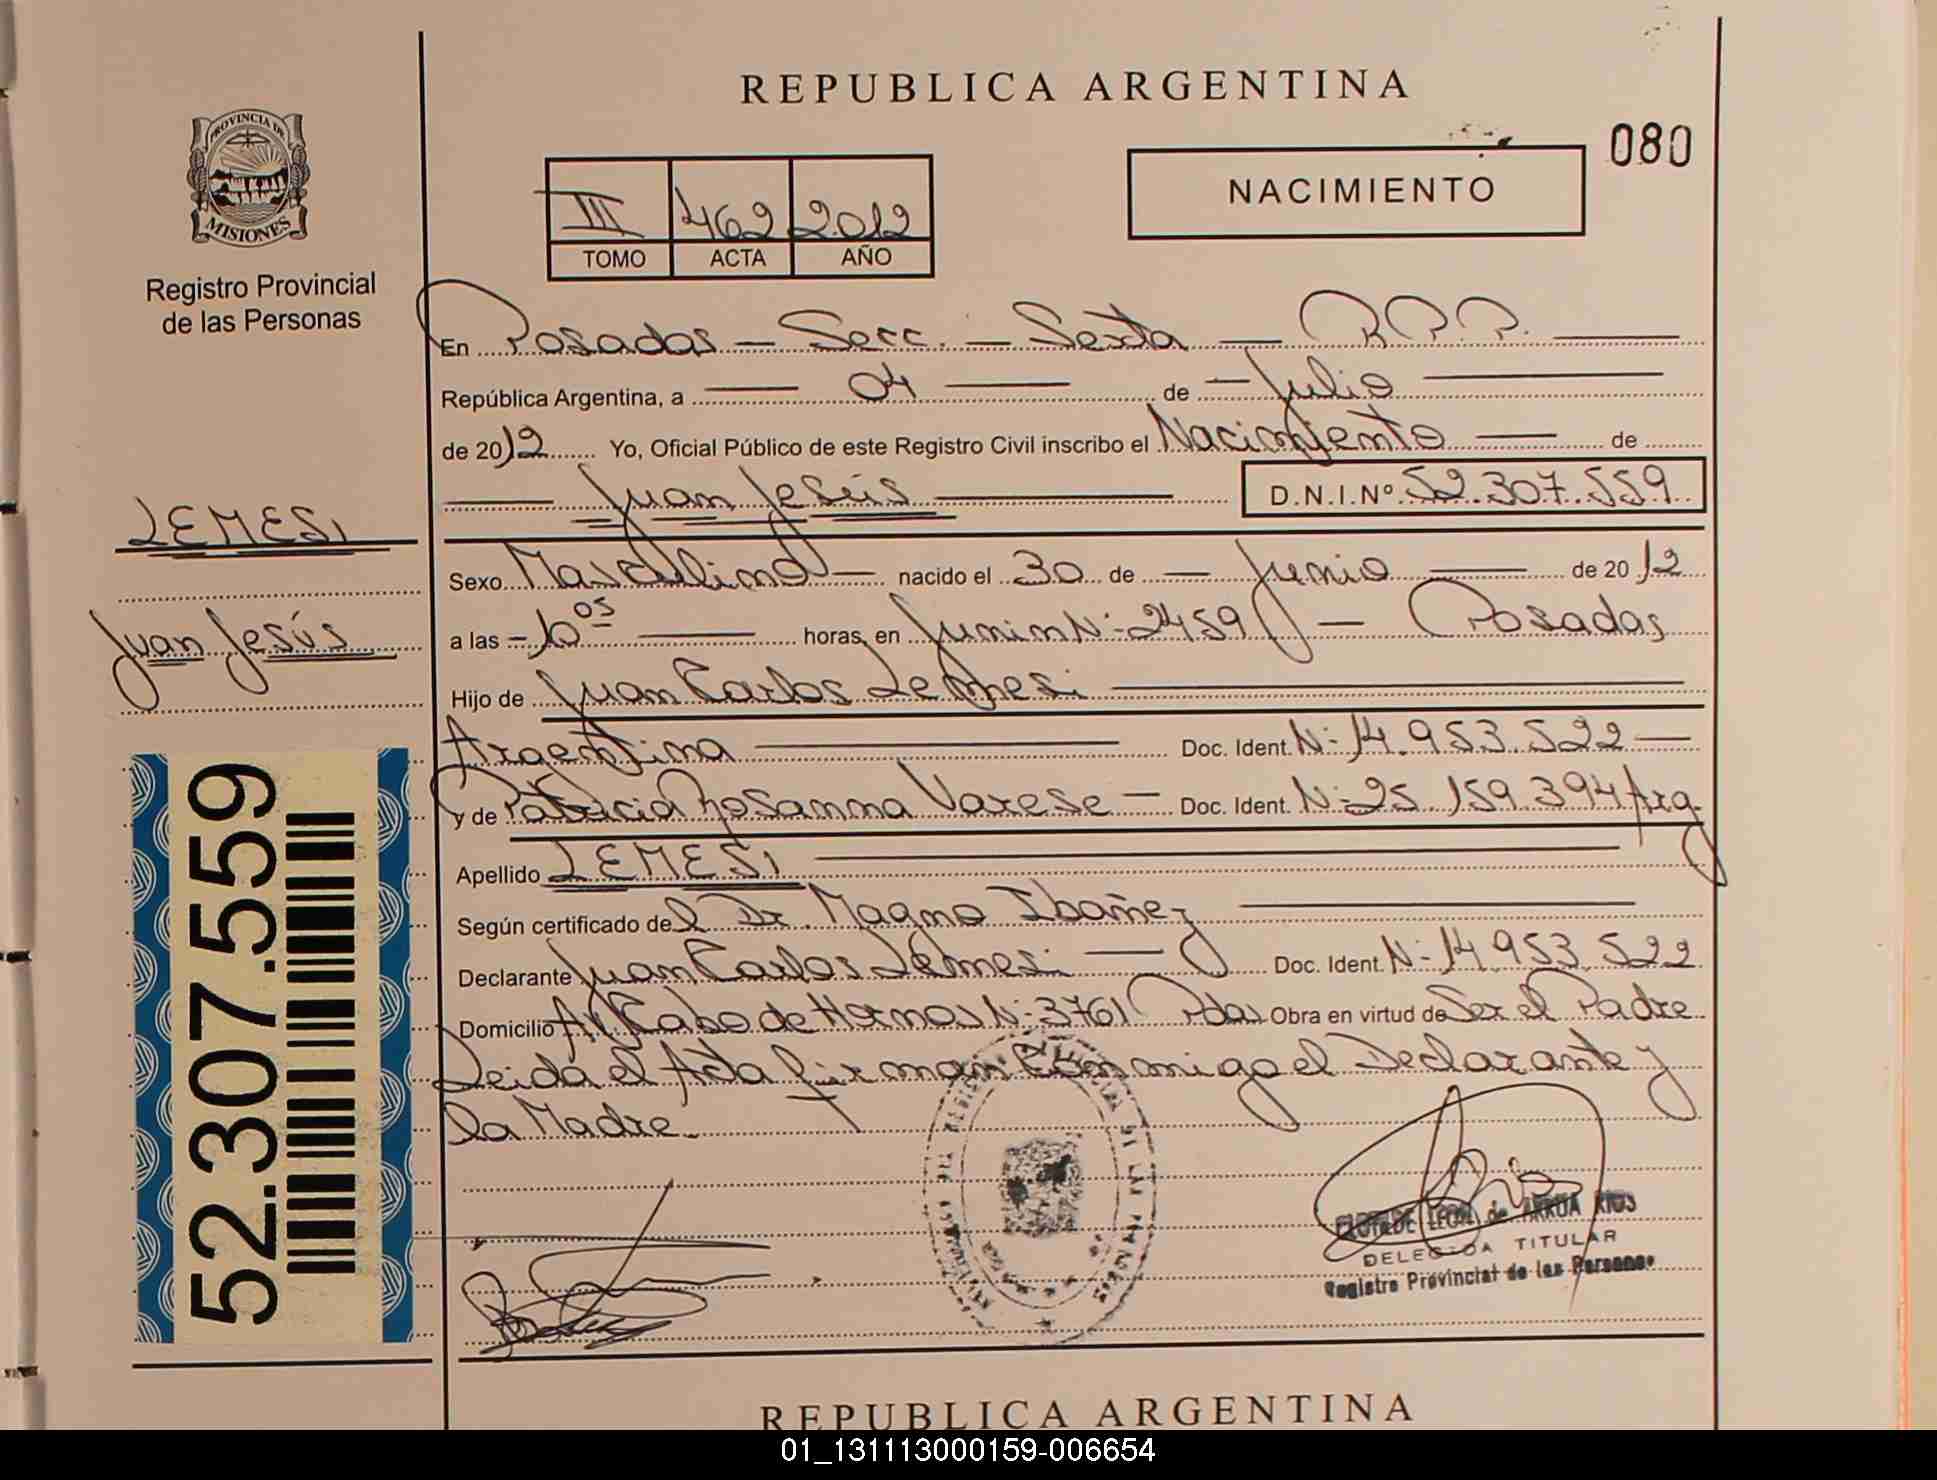 REPUBLICA ARGENTINA
080
NACIMIENTO
III 462 2012
TOMO ACTA AÑO
PROVINCIA DE
MISIONES
Registro Provincial
de las Personas
En Posadas - Secc. - Sexta - R.P.P.
República Argentina, a 04 de Julio
de 2012 Yo, Oficial Público de este Registro Civil inscribo el Nacimiento de
Juan Jesús D.N.I.Nº 52.307.559
LEMESI
Juan Jesús
52.307.559
Sexo Masculino nacido el 30 de Junio de 2012
a las 10 05 horas, en Junin Nº 2459 - Posadas
Hijo de Juan Carlos Lemesi
Argentina Doc. Ident. Nº 14.953.522
y de Patricia Rosanna Varese - Doc. Ident. Nº 25.159.394 Arg.
Apellido LEMESI
Según certificado del Dr. Magno Ibañez
Declarante Juan Carlos Lemesi Doc. Ident. Nº 14.953.522
Domicilio Av. Cabo de Hornos Nº 3761 Pdas Obra en virtud de Ser el Padre
Leida el Acta firman Conmigo el Declarante y
la Madre.
DE LEON de ARRUA RIOS
DELEGADA TITULAR
Registro Provincial de las Personas
REPUBLICA ARGENTINA
01_131113000159-006654